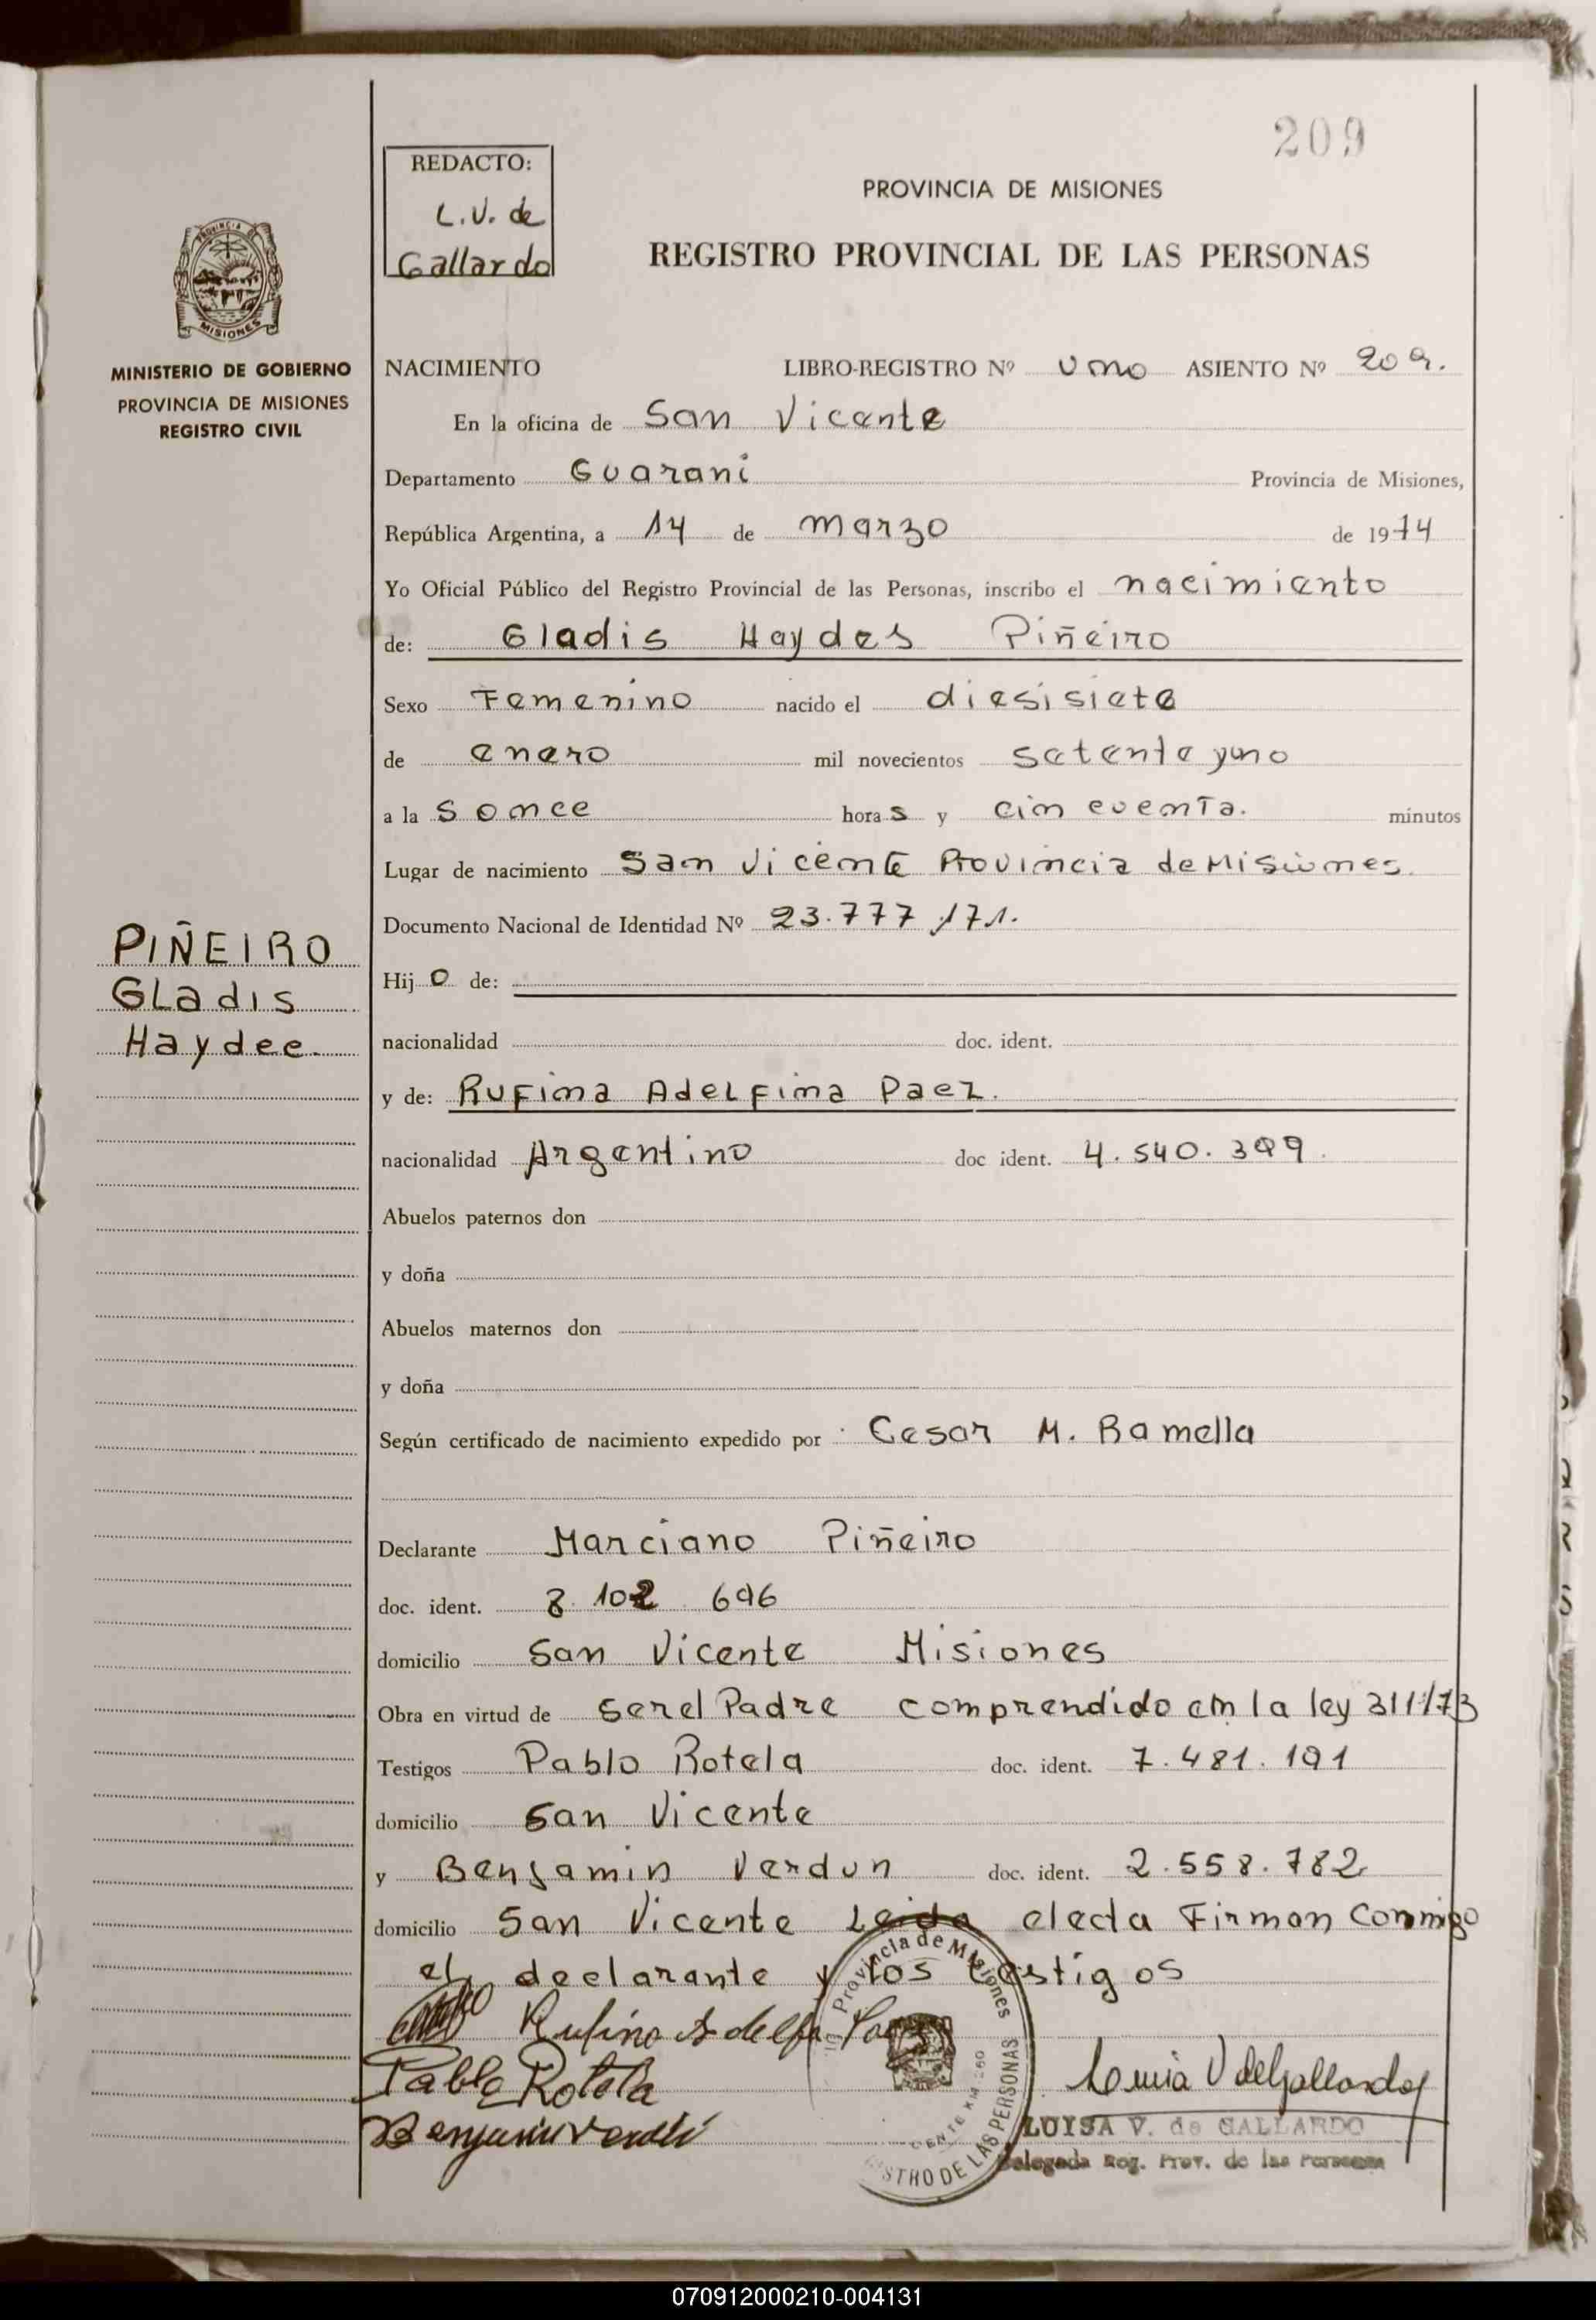 209
REDACTO:
L.V. de
Gallardo
PROVINCIA DE MISIONES
REGISTRO PROVINCIAL DE LAS PERSONAS
PROVINCIA DE
MISIONES
MINISTERIO DE GOBIERNO
PROVINCIA DE MISIONES
REGISTRO CIVIL
NACIMIENTO LIBRO-REGISTRO Nº Uno ASIENTO Nº 209.
En la oficina de San Vicente
Departamento Guarani Provincia de Misiones,
República Argentina, a 14 de marzo de 1974
Yo Oficial Público del Registro Provincial de las Personas, inscribo el nacimiento
de: Gladis Haydes Piñeiro
Sexo Femenino nacido el diesisiete
de enero mil novecientos setenta yuno
a la s once hora s y cincuenta. minutos
Lugar de nacimiento San Vicente Provincia de Misiones.
Documento Nacional de Identidad Nº 23.777.171.
PIÑEIRO
GLadis
Haydee.
Hij o de:
nacionalidad doc. ident.
y de: Rufina AdeLfina Paez.
nacionalidad Argentino doc ident. 4.540.399.
Abuelos paternos don
y doña
Abuelos maternos don
y doña
Según certificado de nacimiento expedido por Cesar M. Ramella
Declarante Marciano Piñeiro
doc. ident. 8.102.696
domicilio San Vicente Misiones
Obra en virtud de ser el Padre comprendido en la ley 311/73
Testigos Pablo Rotela doc. ident. 7.481.191
domicilio San Vicente
y Bensamin Verdun doc. ident. 2.558.782
domicilio San Vicente Leida elacta Firman Conmigo
el declarante y los testigos
Rufina Adelfa Paez
Pablo Rotela
Benjamin Verdun
Provincia de Misiones
REGISTRO DE LAS PERSONAS
Luisa V de Gallardo
LUISA V. de GALLARDO
Delegada Reg. Prov. de las Personas
070912000210-004131